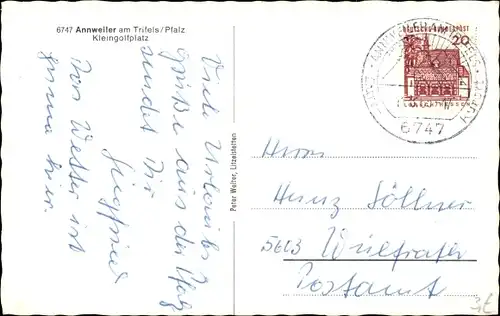 6747 Annweiler am Trifels/Pfalz
Kleingolfplatz
Viele Urlaubs-
grüße aus der Pfalz
sendet Dir
Siegfried
Das Wetter ist
prima hier.
Peter Welter, Litzelstetten
DEUTSCHE BUNDESPOST
20
6747
Herrn
Heinz Söllner
5603 Wülfrath
Postamt